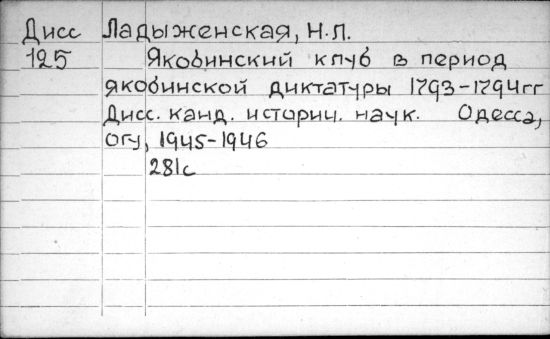 Дисс Ладыженская, Н.Л.
125 Якобинский клуб в период
якобинской диктатуры 1793-1794гг
Дисс. канд. историч. наук. Одесса,
ОГУ, 1945-1946
281с